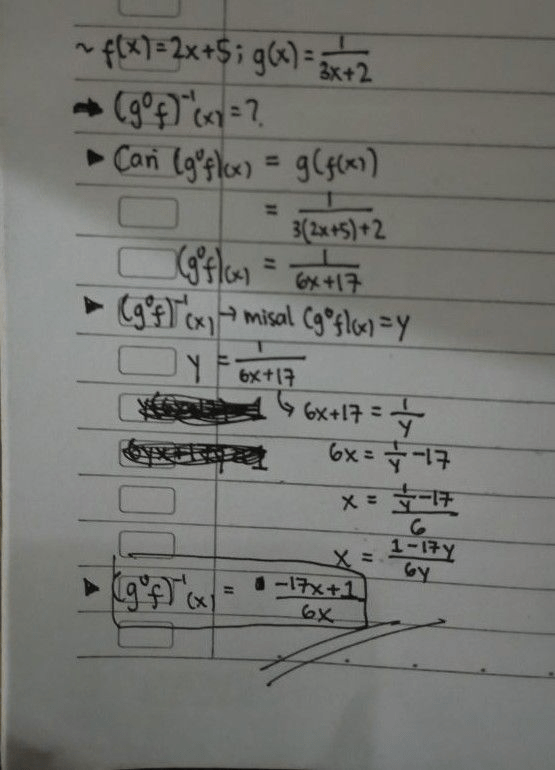 ~ f(x) = 2x+5 ; g(x) = 1/(3x+2)
→ (g°f)⁻¹(x) = ?
▸ Cari (g°f)(x) = g(f(x))
= 1/(3(2x+5)+2)
(g°f)(x) = 1/(6x+17)
▸ (g°f)⁻¹(x) → misal (g°f)(x) = y
y = 1/(6x+17)
↳ 6x+17 = 1/y
6x = 1/y -17
x = (1/y -17)/6
x = (1-17y)/(6y)
▸ (g°f)⁻¹(x) = (-17x+1)/(6x)